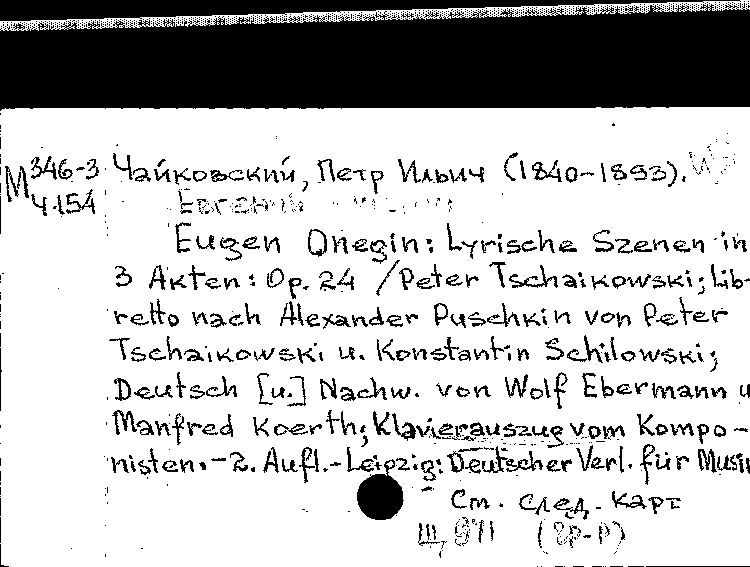 М 346-3
Ч-154
Чайковский, Петр Ильич (1840-1893).
Евгений
Eugen Onegin: Lyrische Szenen in
3 Akten: Op. 24 / Peter Tschaikowski; Lib-
retto nach Alexander Puschkin von Peter
Tschaikowski u. Konstantin Schilowski;
Deutsch [u.] Nachw. von Wolf Ebermann u
Manfred Koerth; Klavierauszug vom Kompo-
nisten. - 2. Aufl. - Leipzig: Deutscher Verl. für Musik
См. след. карт